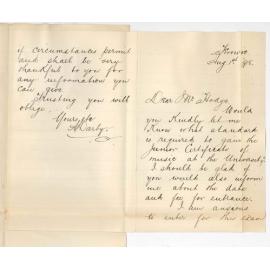 Aug 1st /98.
Dear Mr Hodge
Would
you Kindly let me
Know what standard
is required to gain the
Junior Certificate of
music at the University.
I should be glad if
you would also inform
me about the date
and fee for entrance.
I am anxious
to enter for this exam
if circumstances permit
and shall be very
thankful to you for
any information you
can give
Trusting you will
oblige.
Yours, &c
Darby.